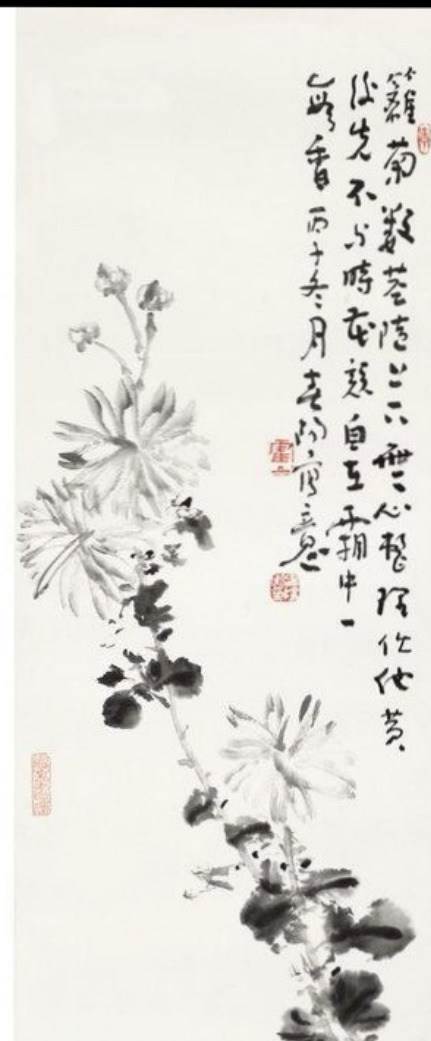 籬菊數莖隨上下無心整理任他黃
後先不与時花競自吐霜中一
段香丙子冬月寫意